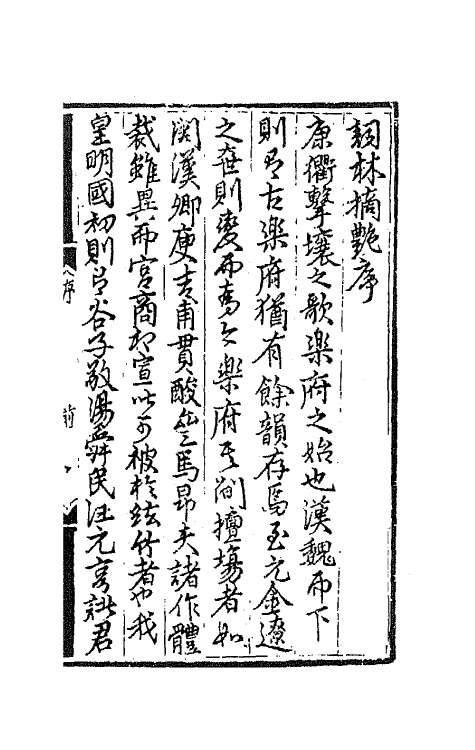 詞林摘艷序
康衢擊壤之歌樂府之始也漢魏而下
則有古樂府猶有餘韻存焉至元金遼
之世則變而為今樂府其間擅場者如
関漢卿庾吉甫貫酸齋馬昂夫諸作體
裁雖異而宮商相宣皆可被於絃竹者也我
皇明國初則有谷子敬湯舜民汪元亨諸君
序
前